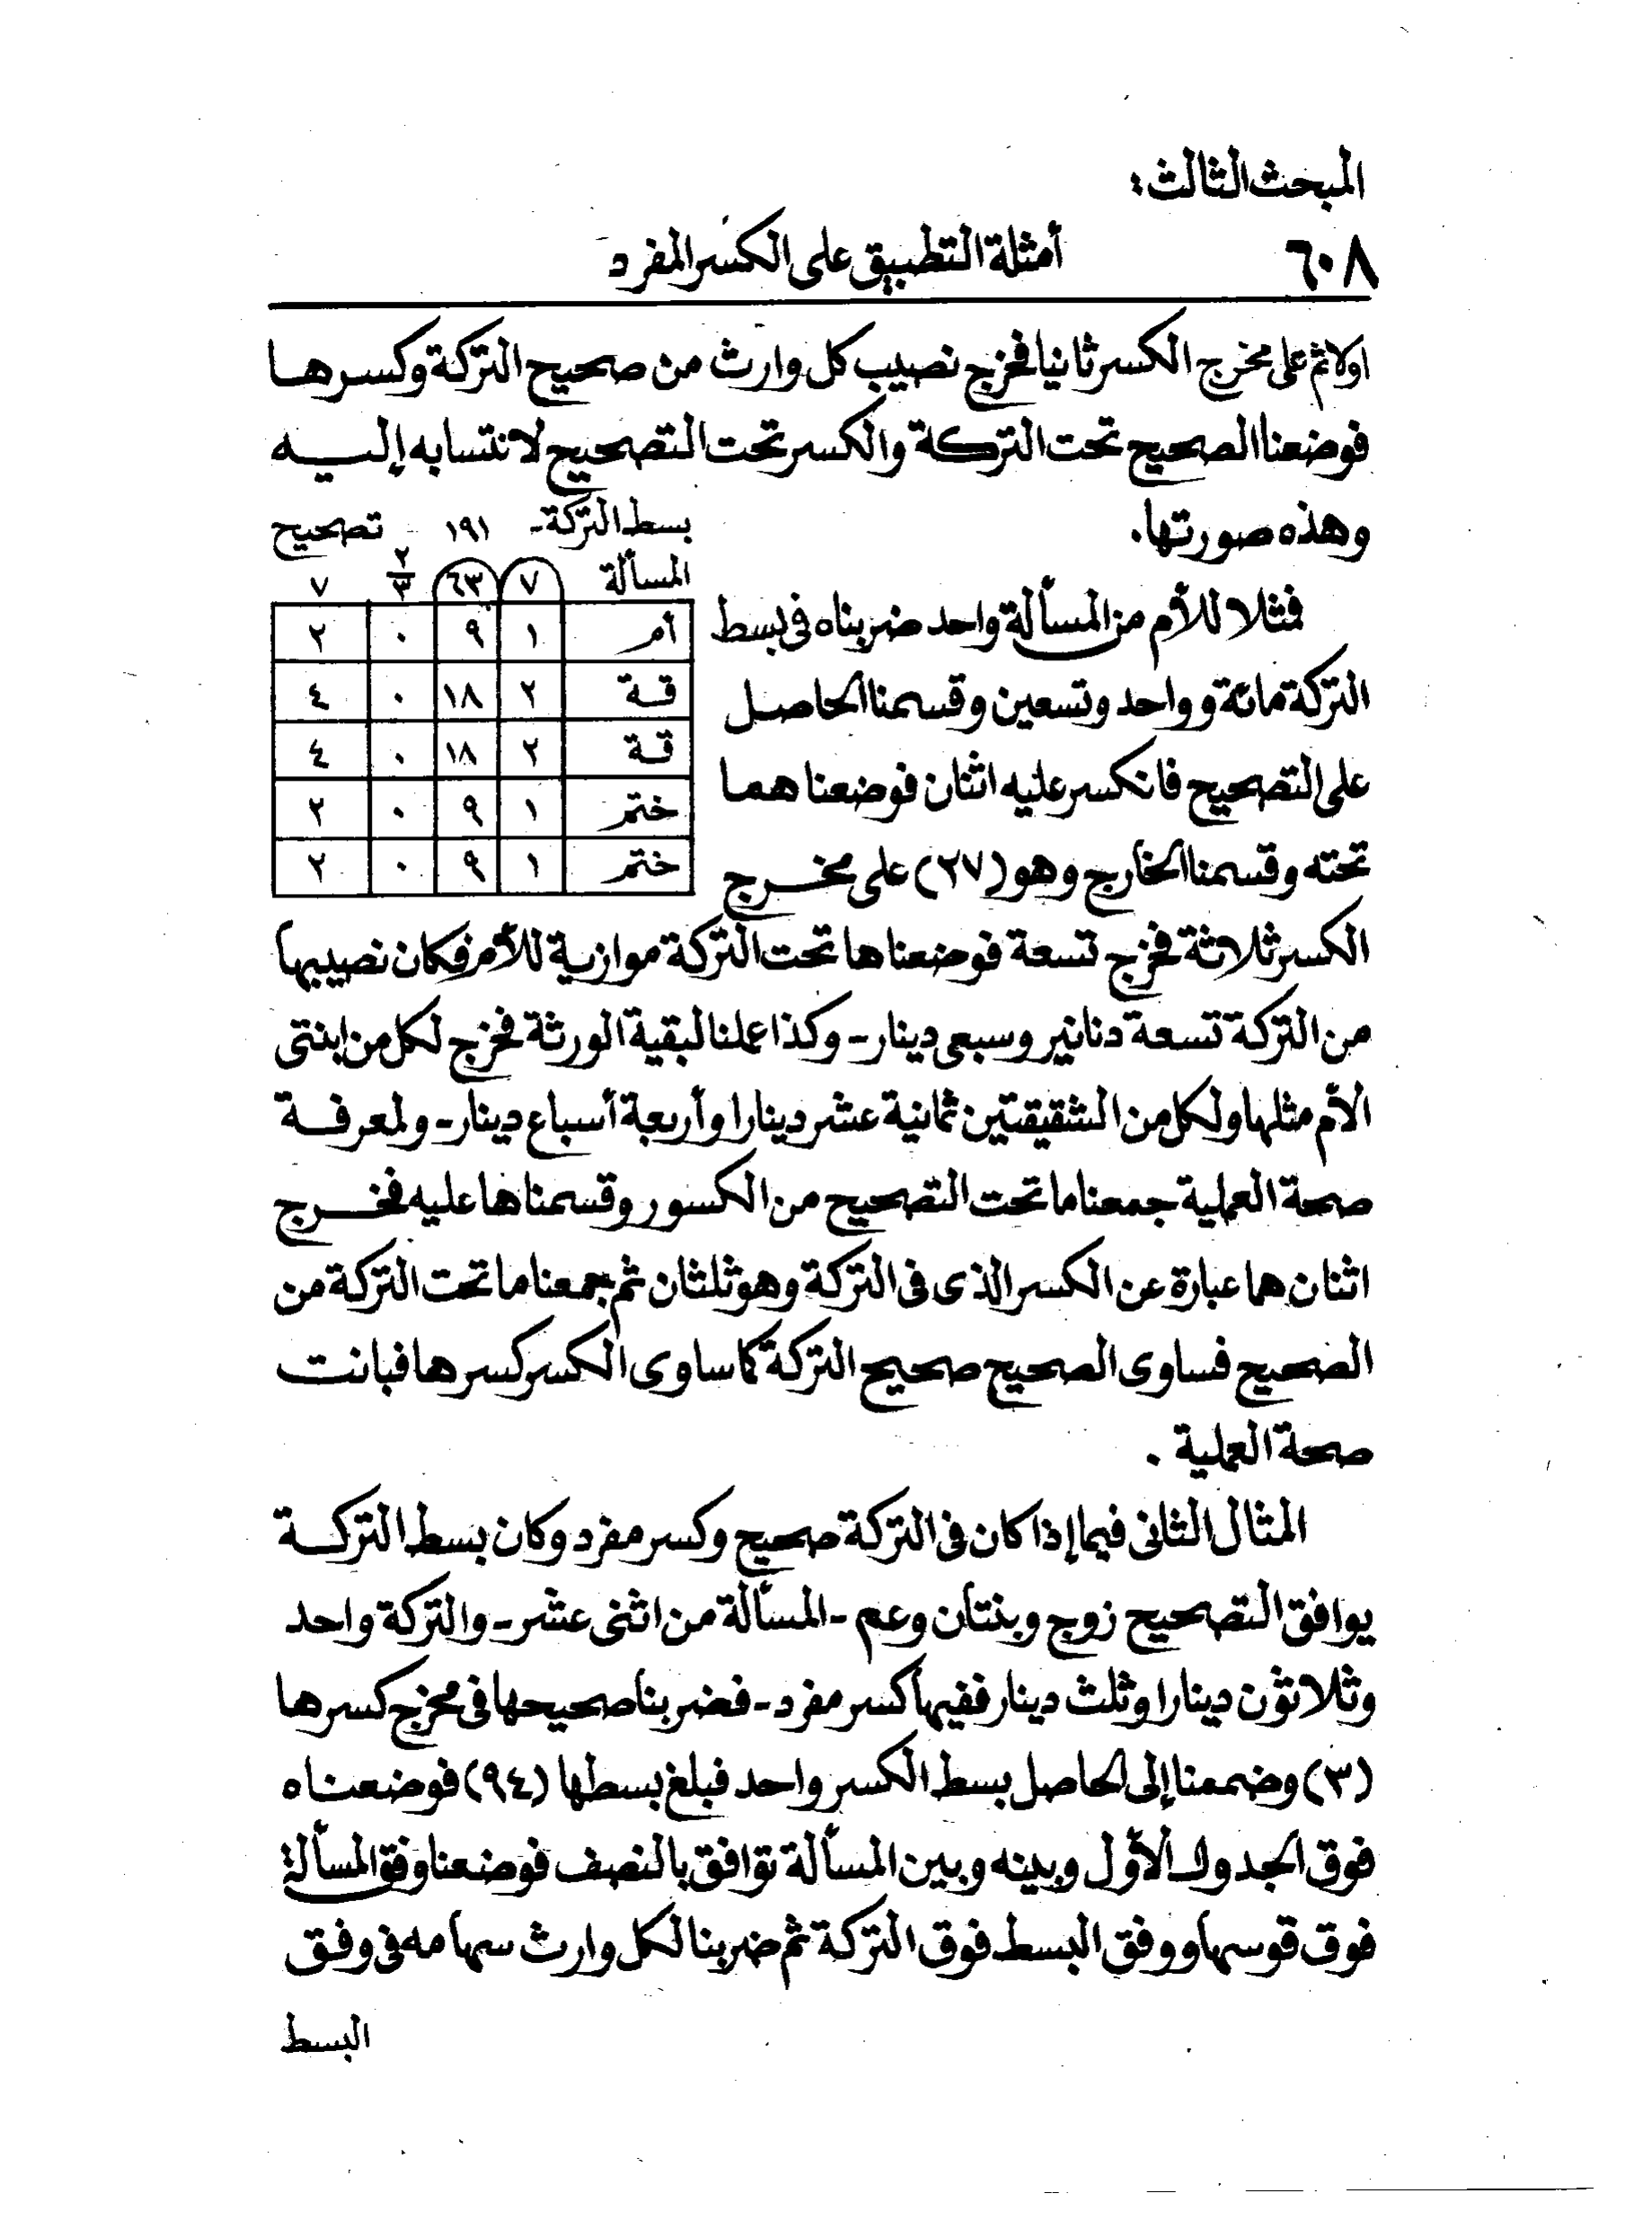 المبحث الثالث:
٦٠٨ أمثلة التطبيق على الكسر المفرد
اولا ثم على مخرج الكسر ثانيا فخرج نصيب كل وارث من صحيح التركة وكسرها
فوضعنا الصحيح تحت التركة والكسر تحت التصحيح لانتسابه إليه
وهذه صورتها.
بسط التركة - ١٩١ - تصحيح
المسألة ٧ ٦٣ ٢/٣ ٧
أم ١ ٩ ٠ ٢
قة ٢ ١٨ ٠ ٤
قة ٢ ١٨ ٠ ٤
ختم ١ ٩ ٠ ٢
ختم ١ ٩ ٠ ٢
فمثلا للأم من المسألة واحد ضربناه فى بسط
التركة مائة وواحد وتسعين وقسمنا الحاصل
على التصحيح فانكسر عليه اثنان فوضعناهما
تحته وقسمنا الخارج وهو (٢٧) على مخرج
الكسر ثلاثة فخرج تسعة فوضعناها تحت التركة موازية للأم فكان نصيبها
من التركة تسعة دنانير وسبعى دينار - وكذا عملنا لبقية الورثة فخرج لكل من ابنتى
الأم مثلها ولكل من الشقيقتين ثمانية عشر دينارا وأربعة أسباع دينار - ولمعرفة
صحة العملية جمعنا ما تحت التصحيح من الكسور وقسمناها عليه فخرج
اثنان هما عبارة عن الكسر الذى فى التركة وهو ثلثان ثم جمعنا ما تحت التركة من
الصحيح فساوى الصحيح صحيح التركة كما ساوى الكسر كسرها فبانت
صحة العملية .
المثال الثانى فيما إذا كان فى التركة صحيح وكسر مفرد وكان بسط التركة
يوافق التصحيح زوج وبنتان وعم - المسألة من اثنى عشر - والتركة واحد
وثلاثون دينارا وثلث دينار ففيها كسر مفرد - فضربنا صحيحها فى مخرج كسرها
(٣) وضممنا إلى الحاصل بسط الكسر واحد فبلغ بسطها (٩٤) فوضعناه
فوق الجدول الأول وبينه وبين المسألة توافق بالنصف فوضعنا وفق المسألة
فوق قوسها ووفق البسط فوق التركة ثم ضربنا لكل وارث سهامه فى وفق
البسط